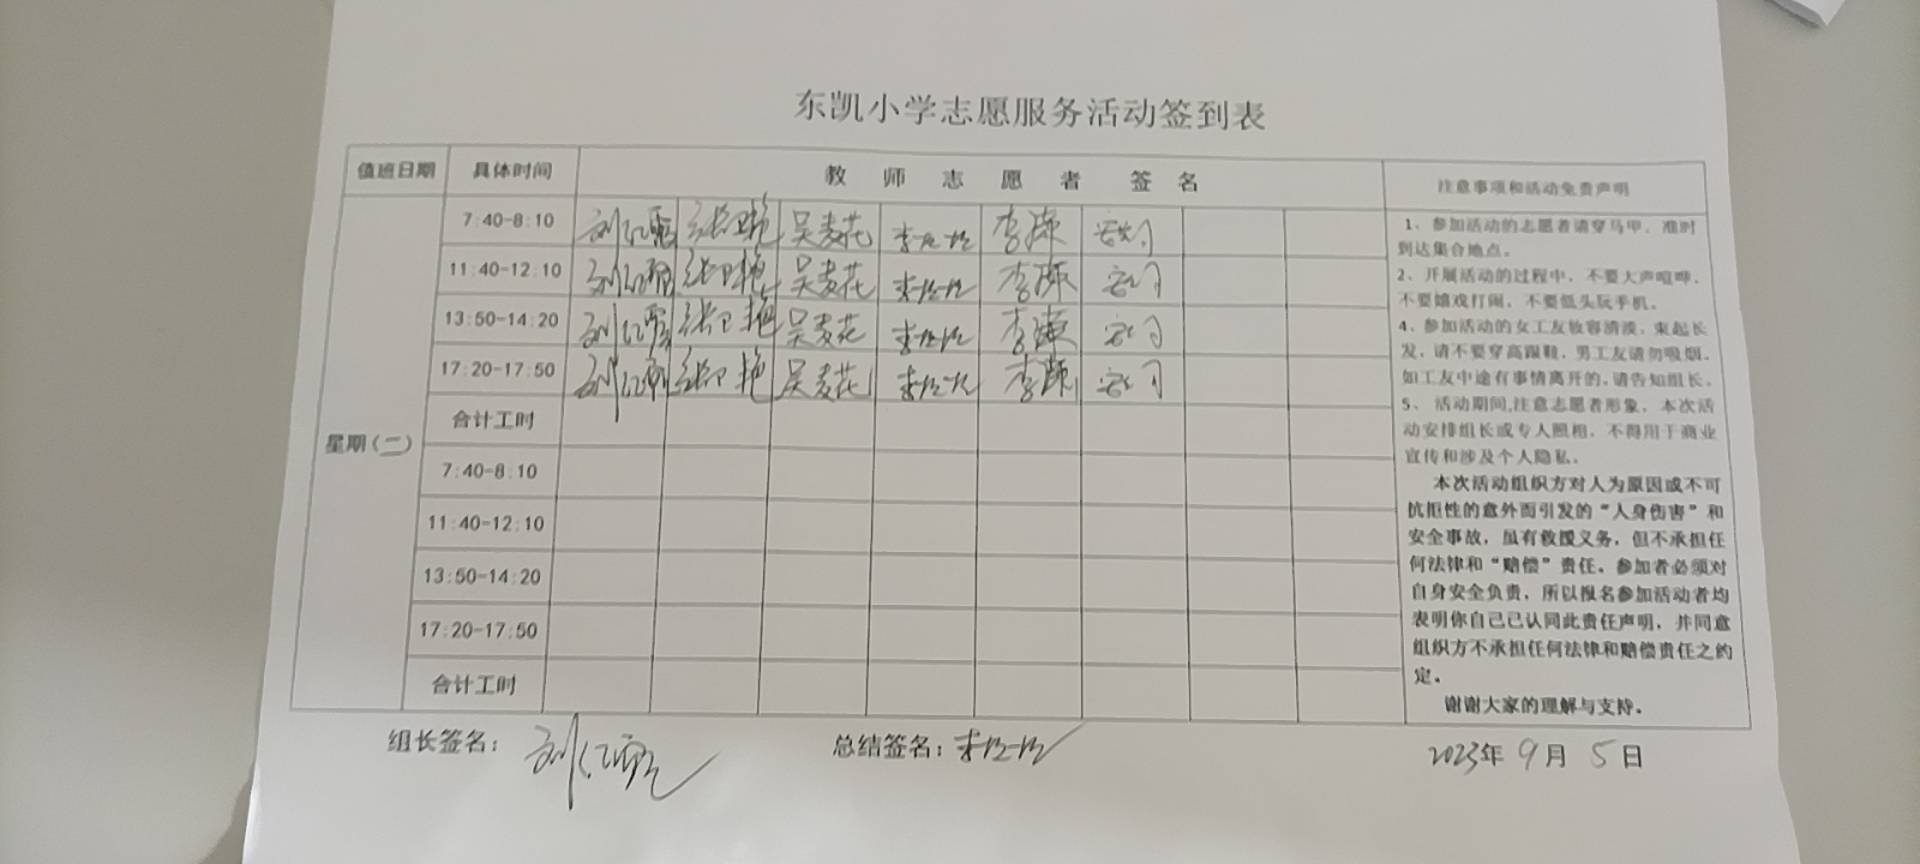 东凯小学志愿服务活动签到表
值班日期 具体时间 教师志愿者 签名 注意事项和活动免责声明
星期(二)
7:40-8:10 张卫艳 吴麦花 李
11:40-12:10 张卫艳 吴麦花 李
13:50-14:20 张卫艳 吴麦花 李
17:20-17:50 张卫艳 吴麦花 李
合计工时
7:40-8:10
11:40-12:10
13:50-14:20
17:20-17:50
合计工时
1、参加活动的志愿者请穿马甲,准时
到达集合地点。
2、开展活动的过程中,不要大声喧哗,
不要嬉戏打闹,不要低头玩手机。
4、参加活动的女工友妆容清淡,束起长
发,请不要穿高跟鞋,男工友请勿吸烟。
如工友中途有事情离开的,请告知组长。
5、活动期间,注意志愿者形象,本次活
动安排组长或专人照相,不得用于商业
宣传和涉及个人隐私。
本次活动组织方对人为原因或不可
抗拒性的意外而引发的“人身伤害”和
安全事故,虽有救援义务,但不承担任
何法律和“赔偿”责任。参加者必须对
自身安全负责,所以报名参加活动者均
表明你自己已认同此责任声明,并同意
组织方不承担任何法律和赔偿责任之约
定。
谢谢大家的理解与支持。
组长签名: 刘 总结签名: 2023年9月5日